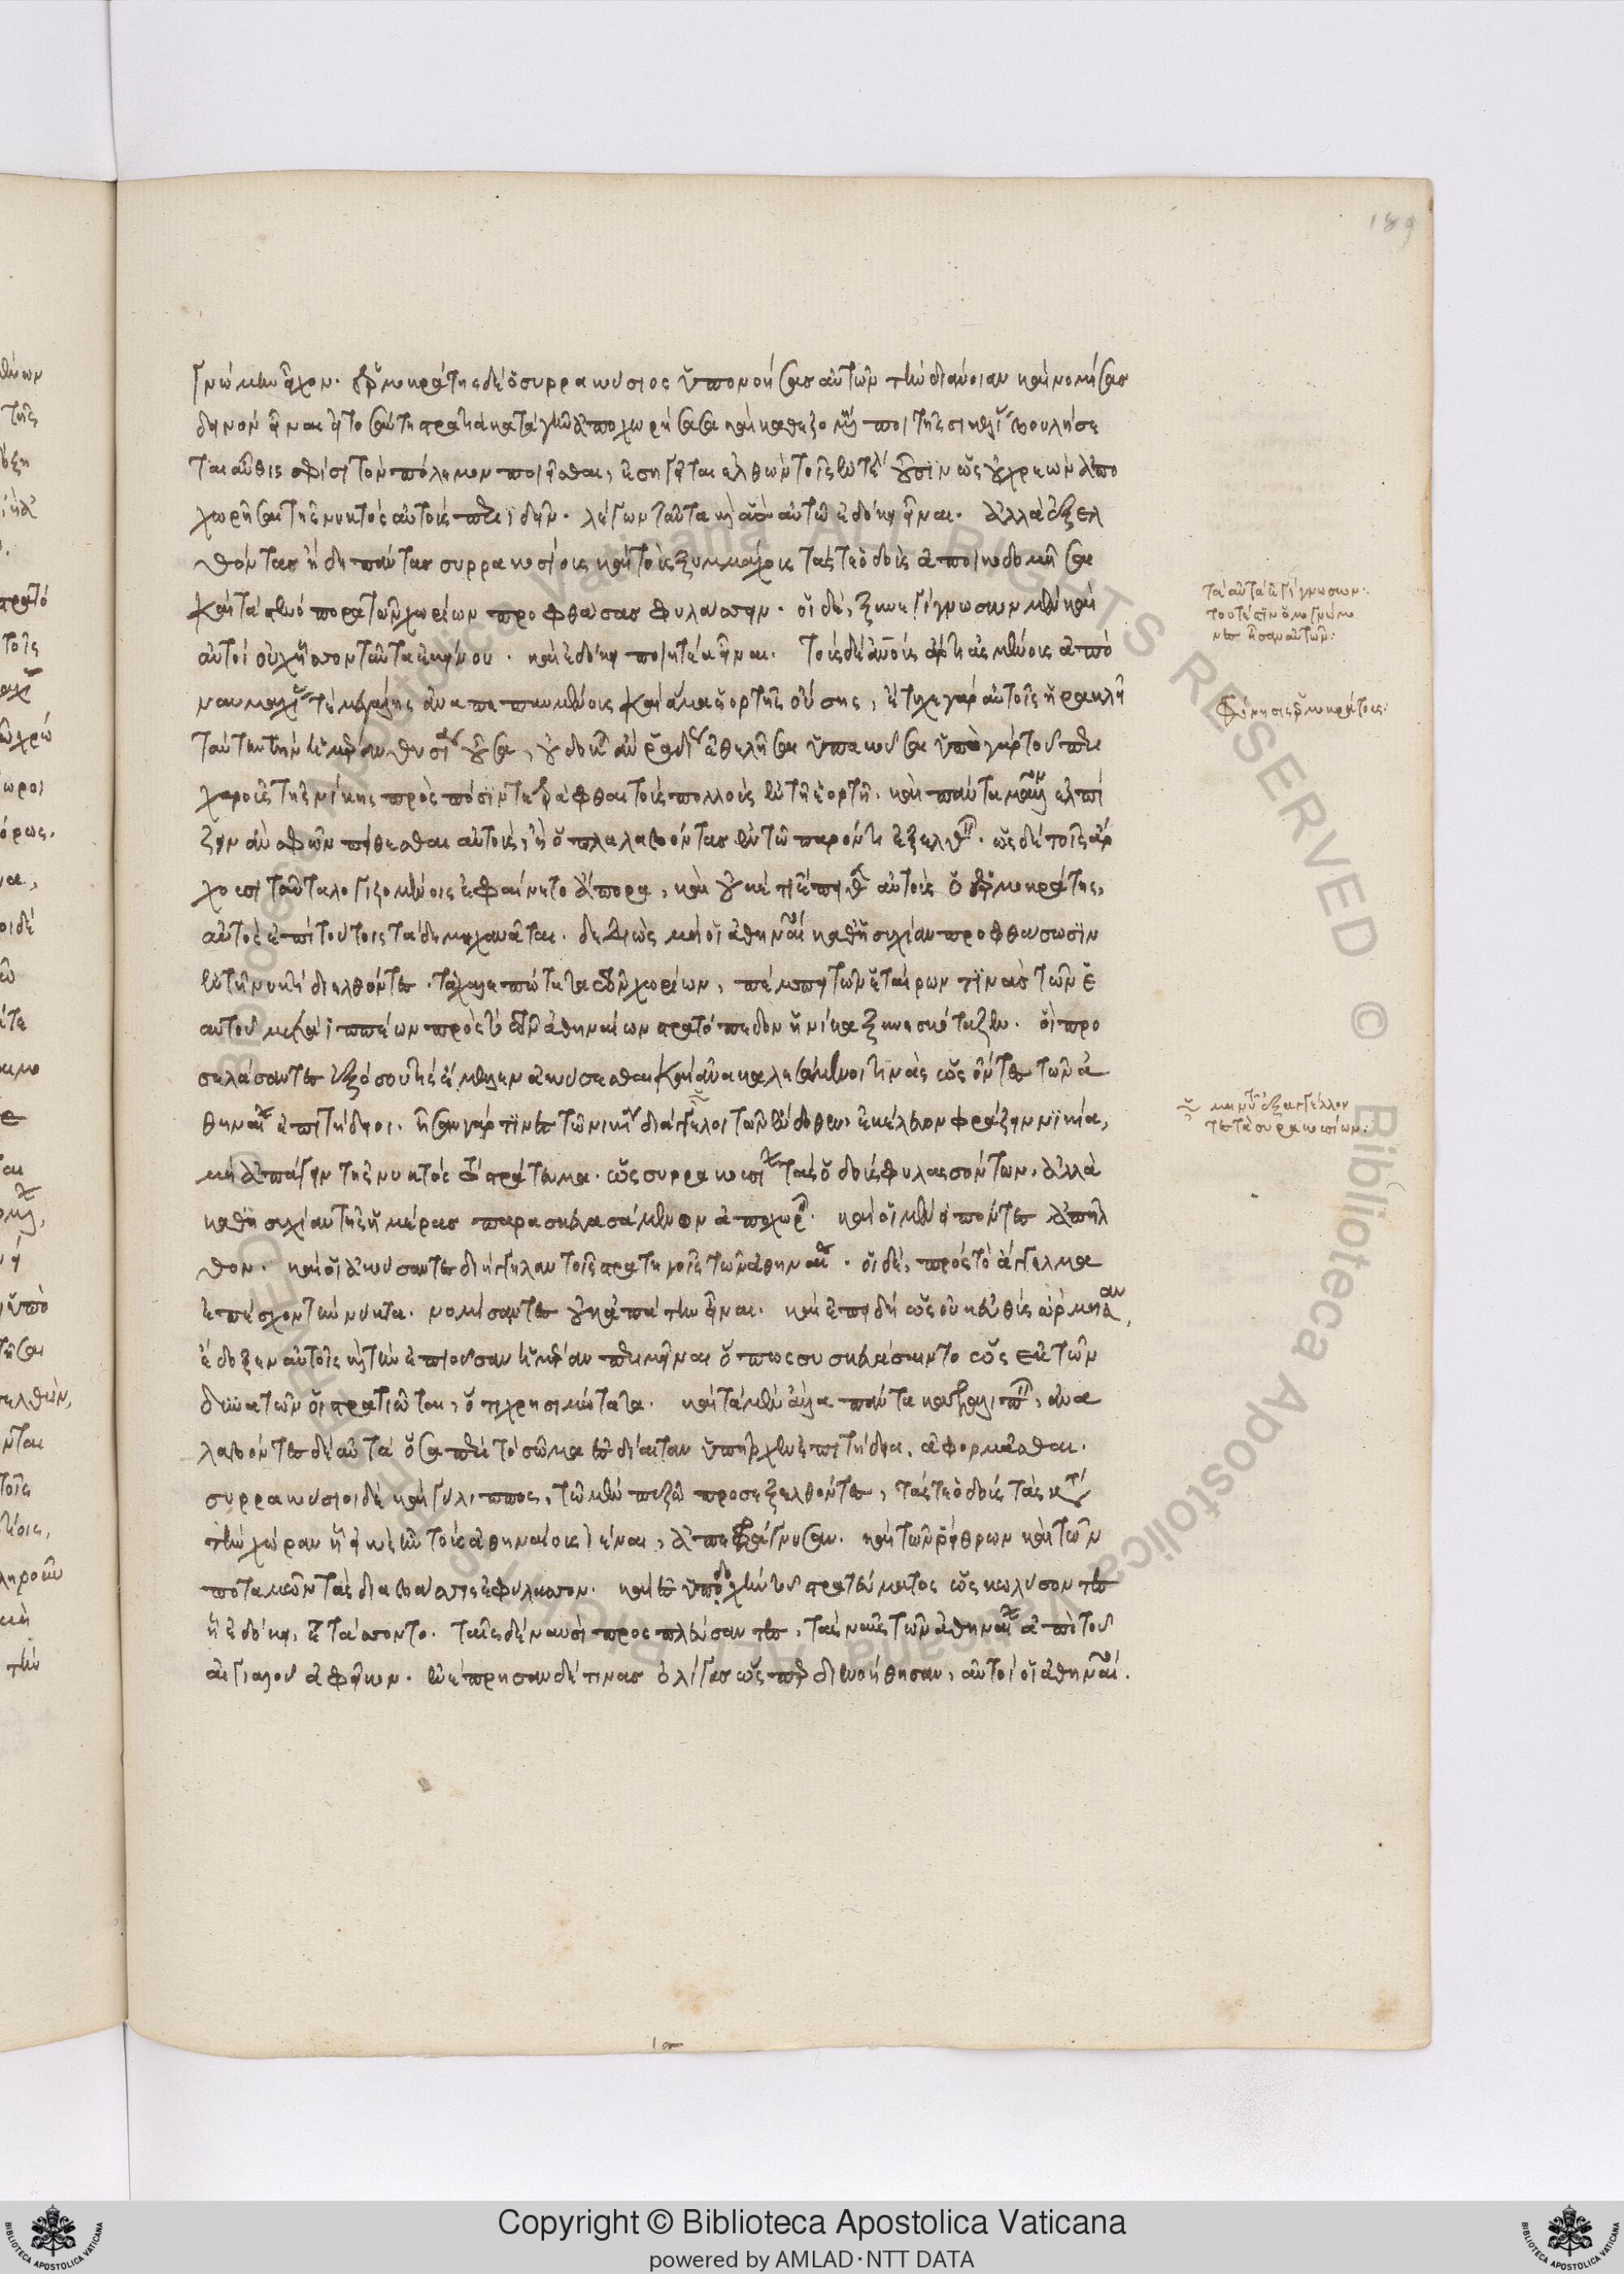 γνώμην εἶχον. ἑρμοκράτης δὲ ὁ συρρακούσιος ὑπονοήσας αὐτῶν τὴν διάνοιαν καὶ νομίσας
δεινὸν εἶναι εἰ τοσαύτη στρατιὰ κατὰ γῆν ἀποχωρήσασα καὶ καθεζομένη ποι τῆς σικελίας βουλήσε
ται αὖθις σφίσι τὸν πόλεμον ποιεῖσθαι, ἐσηγεῖται ἐλθὼν τοῖς ἐν τέλει οὖσιν ὡς οὐ χρεὼν ἀπο
χωρῆσαι τῆς νυκτὸς αὐτοὺς περιϊδεῖν. λέγων ταῦτα ἃ καὶ αὐτῶ ἐδόκει εἶναι. ἀλλὰ ἐξελ
θόντας ἤδη πάντας συρρακοσίους καὶ τοὺς ξυμμάχους τάς τε ὁδοὺς ἀποικοδομῆσαι
καὶ τὰ στενόπορα τῶν χωρίων προφθάσας φυλάσσειν. οἱ δὲ, ξυνεγίγνωσκον μὲν καὶ
αὐτοὶ οὐχ ἧσσον ταῦτα ἐκείνου. καὶ ἐδόκει ποιητέα εἶναι. τοὺς δὲ ἀνους ἄρτι ἀσμένους ἀπὸ
ναυμαχίας τε μεγάλης ἀναπεπαυμένους καὶ ἅμα ἑορτῆς οὔσης, ἔτυχε γὰρ αὐτοῖς ἡρακλεῖ
ταύτην τὴν ἡμέραν θυσία οὖσα, οὐ δοκεῖν ἂν ῥαδίως ἐθελῆσαι ὑπακοῦσαι ὑπὸ γὰρ τοῦ περι
χαροῦς τῆς νίκης πρὸς πόσιν τετράφθαι τοὺς πολλοὺς ἐν τῆ ἑορτῆ. καὶ πάντα μᾶλλον ἐλπί
ζειν ἂν σφῶν πείθεσθαι αὐτοὺς, ἢ ὅπλα λαβόντας ἐν τῶ παρόντι ἐξελθεῖν. ὡς δὲ τοῖς ἄρ
χουσι ταῦτα λογιζομένοις ἐφαίνετο ἄπορα, καὶ οὐκέτι ἔπειθεν αὐτοὺς ὁ ἑρμοκράτης,
αὐτὸς ἐπὶ τούτοις τάδε μηχανᾶται. δεδιὼς μὴ οἱ ἀθηναῖοι καθ' ἡσυχίαν προφθάσωσιν
ἐν τῆ νυκτὶ διελθόντες τὰ χαλεπώτατα τῶν χωρίων, πέμπει τῶν ἑταίρων τινὰς τῶν ἑ
αυτοῦ μετὰ ἱππέων πρὸς τὸ τῶν ἀθηναίων στρατόπεδον ἡνίκα ξυνεσκόταζεν. οἳ προ
σελάσαντες ἐξ ὅσου τις ἔμελλεν ἀκούσεσθαι καὶ ἀνακαλεσάμενοι τινὰς ὡς ὄντες τῶν ἀ
θηναίων ἐπιτήδειοι. ἦσαν γάρ τινες τῶ νικίᾳ διάγγελοι τῶν ἔνδοθεν, ἐκέλευον φράζειν νικία,
μὴ ἀπάγειν τῆς νυκτὸς τὸ στράτευμα. ὡς συρρακοσίων τὰς ὁδοὺς φυλασσόντων. ἀλλὰ
καθ' ἡσυχίαν τῆς ἡμέρας παρασκευασάμενον ἀποχωρεῖν. καὶ οἱ μὲν εἰπόντες ἀπῆλ
θον. καὶ οἱ ἀκούσαντες διήγγειλαν τοῖς στρατηγοῖς τῶν ἀθηναίων. οἱ δὲ, πρὸς τὸ ἄγγελμα
ἐπέσχον τὴν νύκτα. νομίσαντες οὐκ ἀπάτην εἶναι. καὶ ἐπειδὴ ὡς οὐκ εὐθὺς ὥρμησαν,
ἔδοξεν αὐτοῖς καὶ τὴν ἐπιοῦσαν ἡμέραν περιμεῖναι ὅπως συσκευάσαιντο ὡς ἐκ τῶν
δυνατῶν οἱ στρατιῶται, ὅτι χρησιμώτατα. καὶ τὰ μὲν ἄλλα πάντα καταλιπεῖν, ἀνα
λαβόντες δὲ αὐτὰ ὅσα περὶ τὸ σῶμα ἐς δίαιταν ὑπῆρχεν ἐπιτήδεια, ἀφορμᾶσθαι.
συρρακούσιοι δὲ καὶ γύλιππος, τῶ μὲν πεζῶ προσεξελθόντες, τάς τε ὁδοὺς τὰς κατὰ
τὴν χώραν ἧ εἰκὸς ἦν τοὺς ἀθηναίους ἰέναι, ἀπεφράγνυσαν. καὶ τῶν ῥείθρων καὶ τῶν
ποταμῶν τὰς διαβάσεις ἐφύλασσον. καὶ ἐς ὑποδοχὴν τοῦ στρατεύματος ὡς κωλύσοντες
ἧ ἐδόκει, ἐτάσσοντο. ταῖς δὲ ναυσὶ προσπλεύσαντες, τὰς ναῦς τῶν ἀθηναίων ἀπὸ τοῦ
αἰγιαλοῦ ἀφεῖλκον. ἐνέπρησαν δέ τινας ὀλίγας ὥσπερ διενοήθησαν, αὐτοὶ οἱ ἀθηναῖοι.
τὰ αὐτὰ ἐγίγνωσκον.
τουτέστιν ὁμογνώμο
νες ἦσαν αὐτῶν:
φρόνησις ἑρμοκράτους: